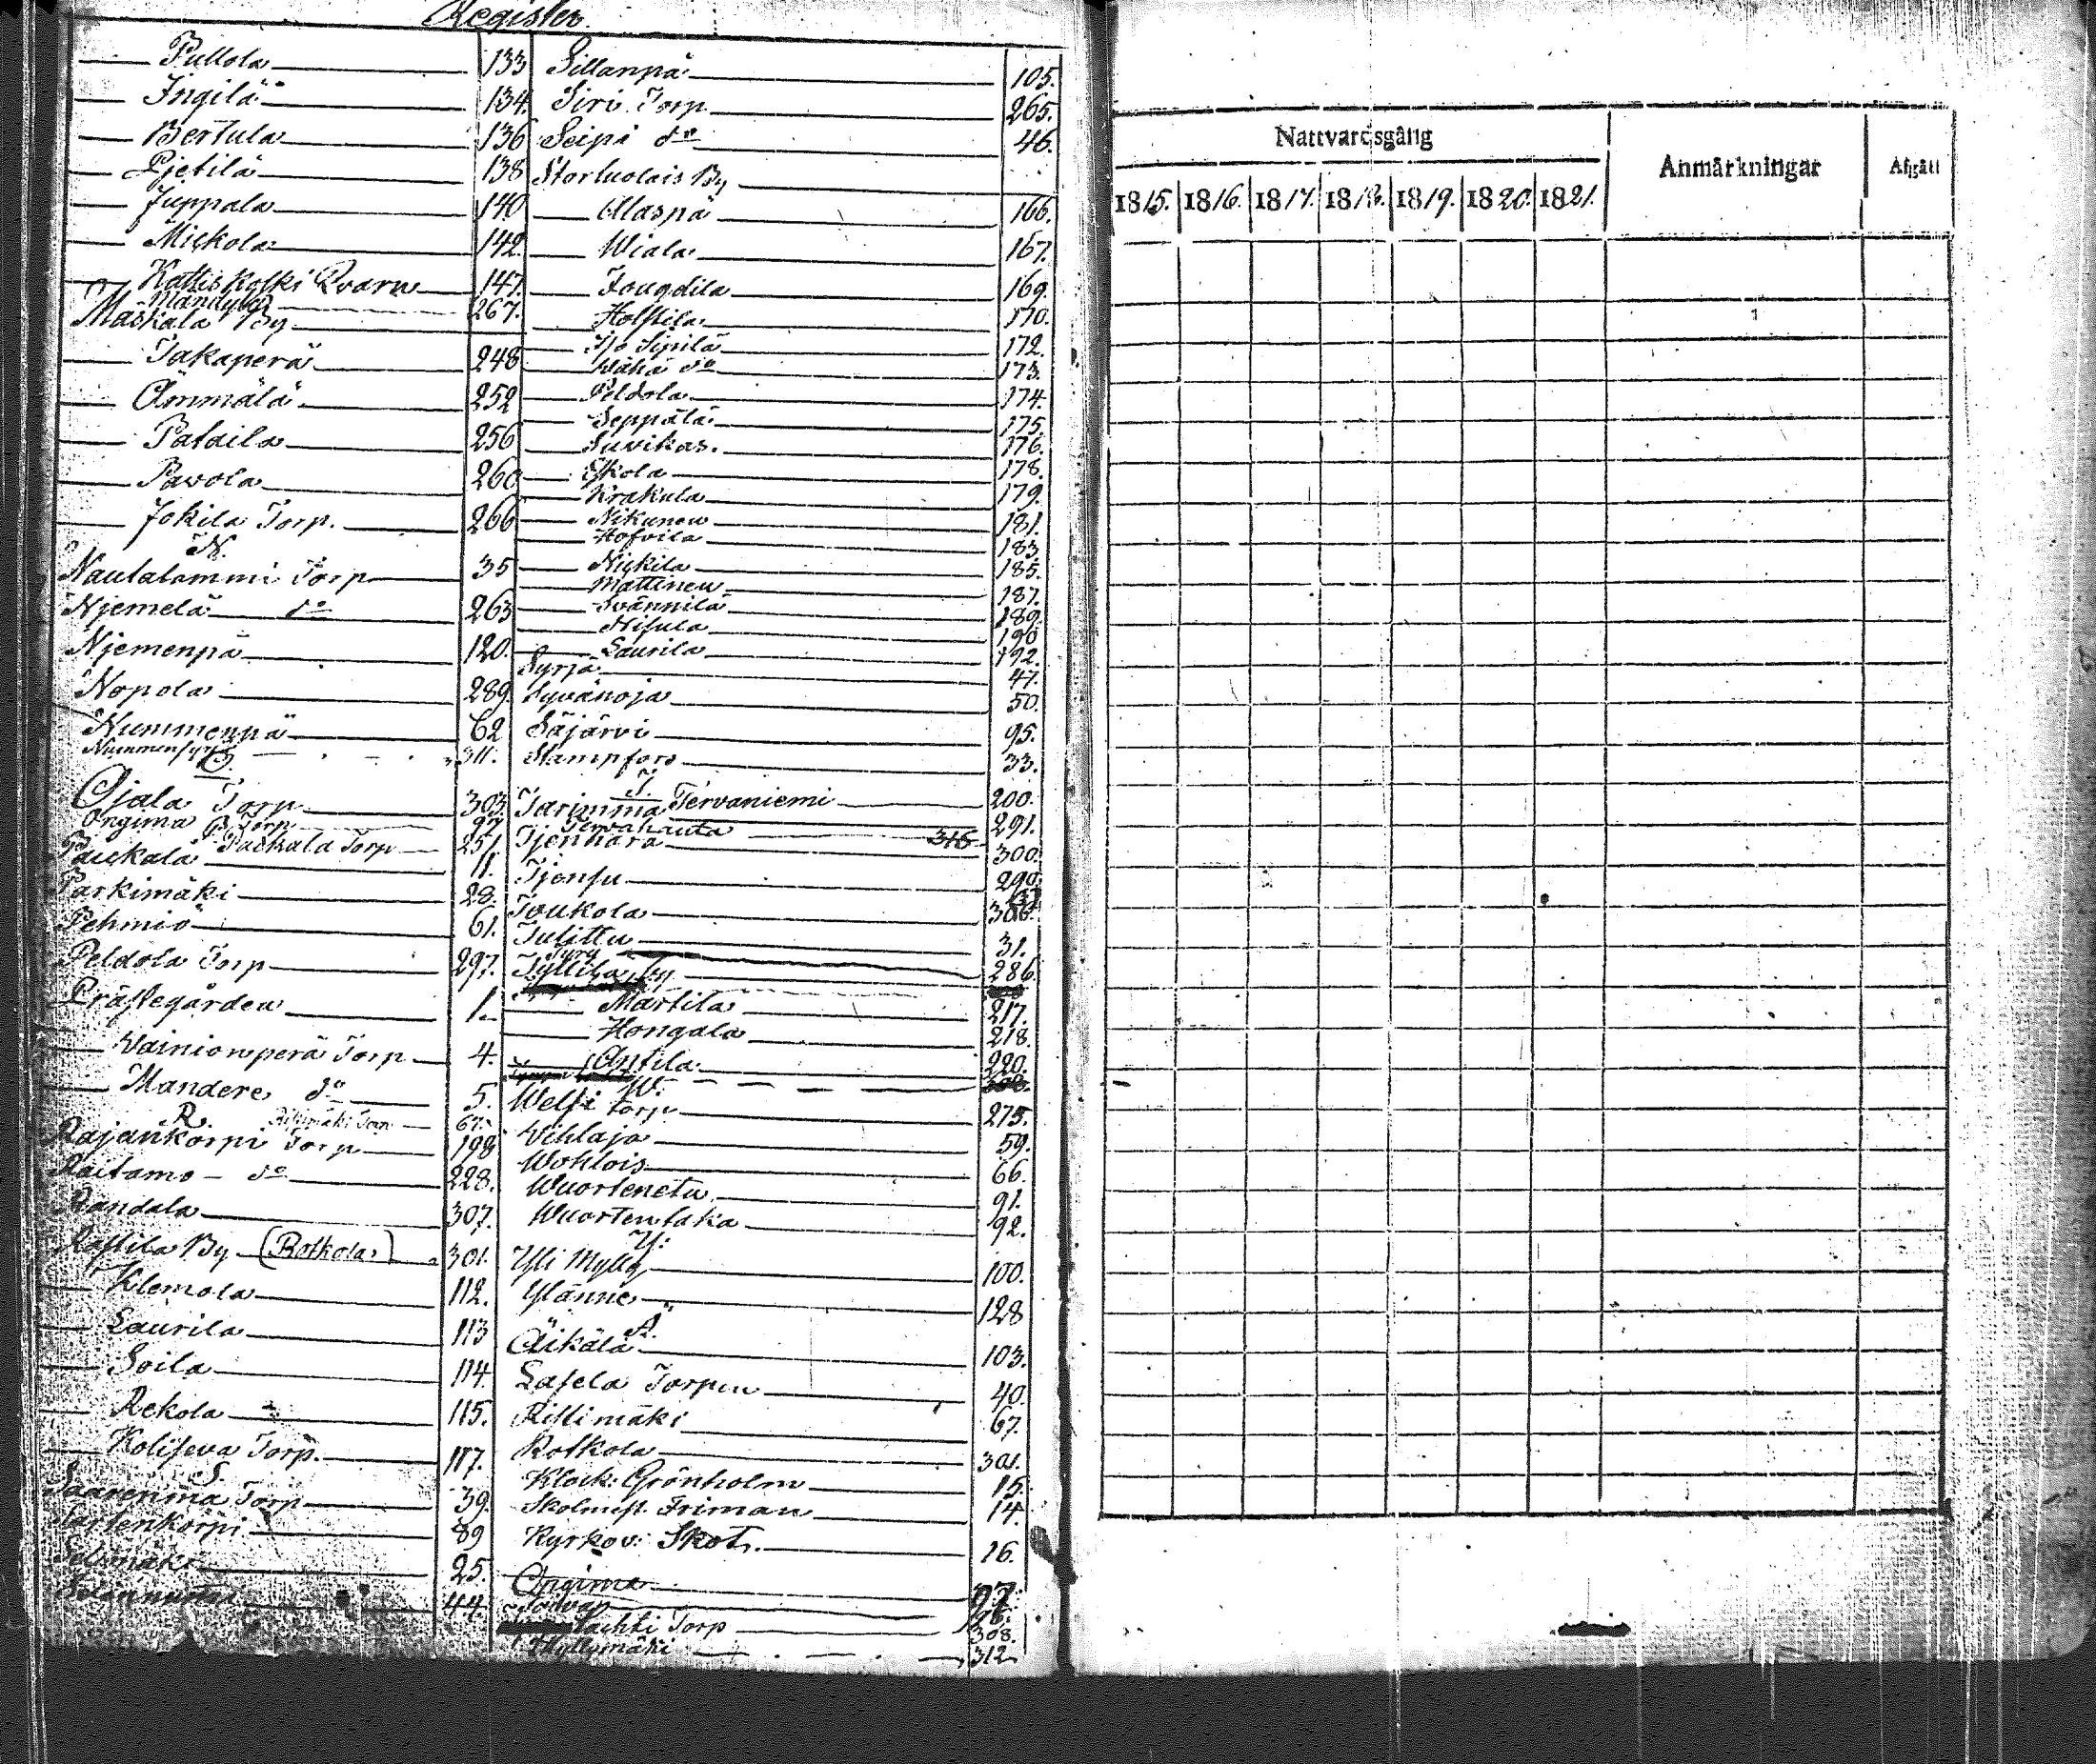 Register
Pullola 133
Ingilä 134.
Bertula 136
Pjetilä 138
Juppala 140
Mickola 142.
Kattiskoski Qvarn 147.
267.
Mäskälä By
Takaperä 248
Ämmälä 252
Pataila 256
Pavola 260
Jokila Torp. 266
N.
Nautalammi Torp 35
Njemelä do 263
Njemenpä 120.
Nopola 289.
Nummenpä 62
311.
O.
Ojala Torp 303.
Ongima Torp 97
P. Packala Torp 251
Packala 11.
Parkimäki 28.
Pehmiö 61.
Peldola Torp 297.
Prästegården 1.
Wainionperä Torp 4.
Mandere do 5.
R. Ristimäki Torp 67.
Rajankorpi Torp 198
Raitamo do 228.
Randala 307.
Rastila By (Rotkola) 301.
Klemola 112.
Laurila 113
Soila 114
Rekola 115.
Kolijeva Torp. 117.
S.
Saarenma Torp 39.
89
25.
44.
Sillanpä 105.
Siri Torp 265.
Seipi do 46.
Stortuolais By
Alaspä 166.
Wiala 167.
169.
Holstila 170.
Iso Sipilä 172.
Wähä do 173.
Peldola 174.
Seppälä 175.
Suvikas. 176.
Eskola 178.
Krakula 179.
Nikunen 181.
Hofvila 183.
Nickila 185.
Mattinen 187.
189.
190
Laurila 192.
Syrjä 47.
Syvänoja 50.
Säjärvi 95.
Stampfors 33.
T.
Tarinma Tervaniemi 200.
291.
Tervahauta 316
Tjenhara 300.
Tjensu 290.
Toukola 306.
Tulittu 31.
Tyllilä By 286
Martila 217.
Hongala 218.
Antila 220.
W.
Welsi torp 275.
Vihlajo 59.
Wohlois 66.
Wuortenetu 91.
Wuortentaka 92.
Y.
Yli Mylly 100.
Ylänne 128
Ä.
Äikälä 103.
Lasela Torpen 40.
Ristimäki 67.
Rotkola 301.
Klock. Grönholm 15.
Skolmest. Friman 14.
Kyrkov: Skot. 16.
Ongima 97.
Lachti Torp 308.
Myllymäki 312
Nattvardsgång
Anmärkningar
Afgått
1815. 1816. 1817. 1818. 1819. 1820. 1821.